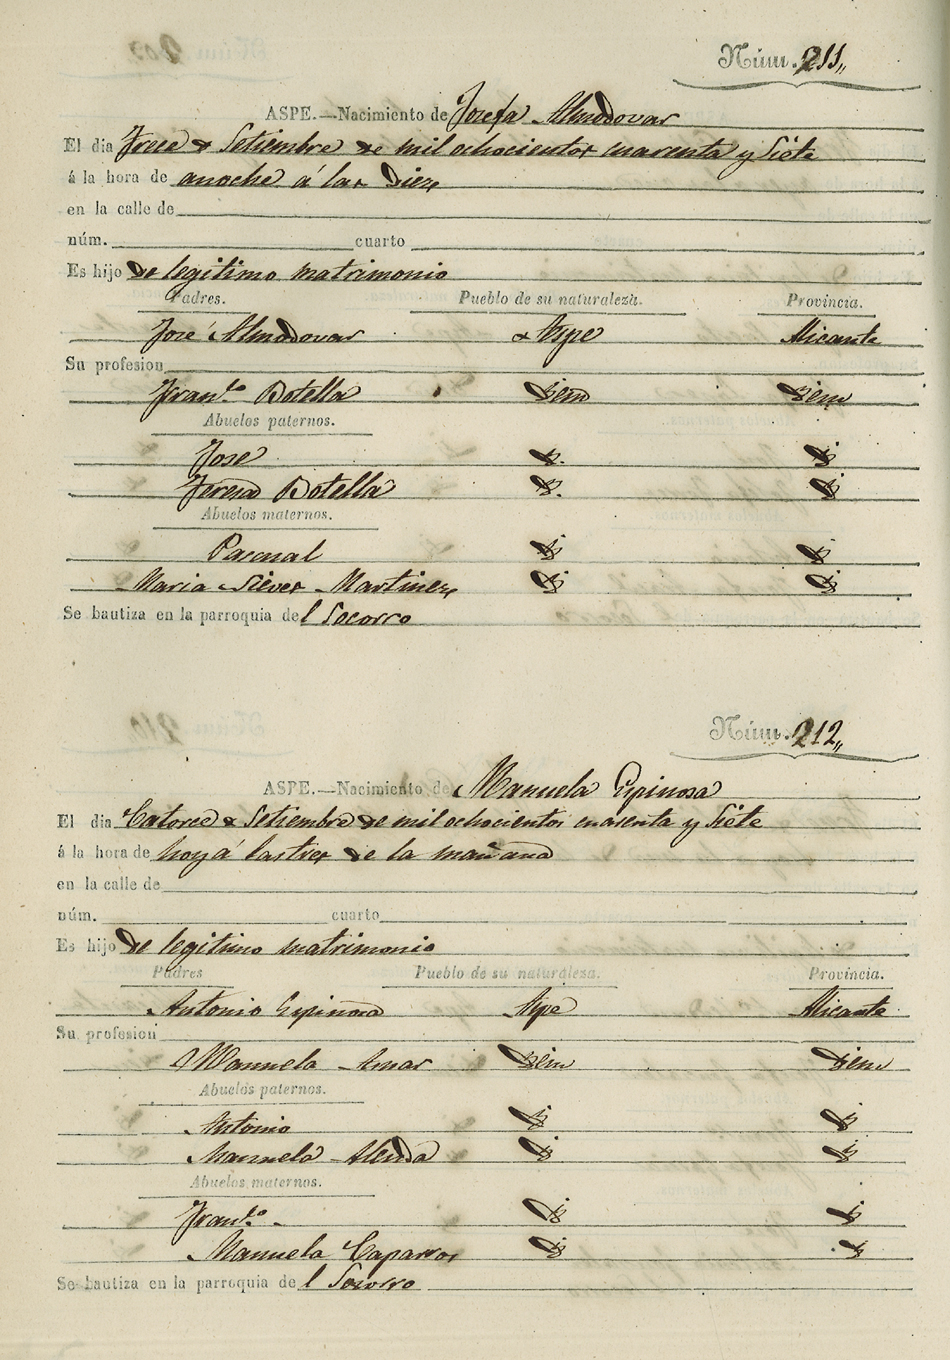 Núm. 211,,
ASPE.—Nacimiento de Josefa Almodovar
El dia Trece de Setiembre de mil ochocientos cuarenta y Siete
á la hora de anoche á las Diez
en la calle de
núm. cuarto
Es hijo de legitimo matrimonio
Padres. Pueblo de su naturaleza. Provincia.
José Almodovar Aspe Alicante
Su profesion
Fran.ca Botella Idem Idem
Abuelos paternos.
Jose Id. Id.
Teresa Botella Id. Id.
Abuelos maternos.
Pascual Id. Id.
Maria Martinez Id. Id.
Se bautiza en la parroquia del Socorro
Núm. 212,,
ASPE.—Nacimiento de Manuela Espinosa
El dia Catorce de Setiembre de mil ochocientos cuarenta y Siete
á la hora de hoy á las tres de la mañana
en la calle de
núm. cuarto
Es hijo de legitimo matrimonio
Padres Pueblo de su naturaleza. Provincia.
Antonio Espinosa Aspe Alicante
Su profesion
Manuela Idem Idem
Abuelos paternos.
Antonio Id. Id.
Manuela Alenda Id. Id.
Abuelos maternos.
Fran.co Id. Id.
Manuela Caparros Id. Id.
Se bautiza en la parroquia del Socorro